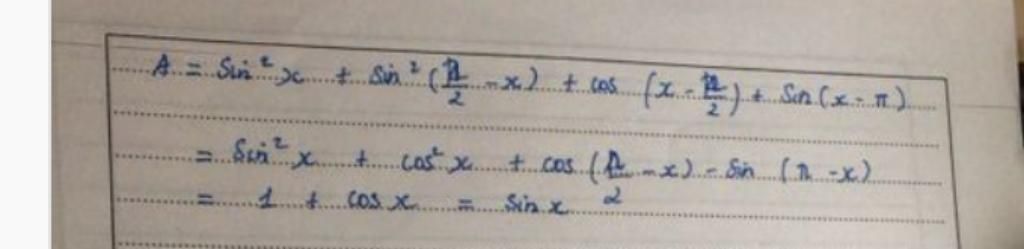 A = sin² x + sin² (π/2 - x) + cos (x - π/2) + sin (x - π)
= sin² x + cos² x + cos (π/2 - x) - sin (π - x)
= 1 + cos x = sin x